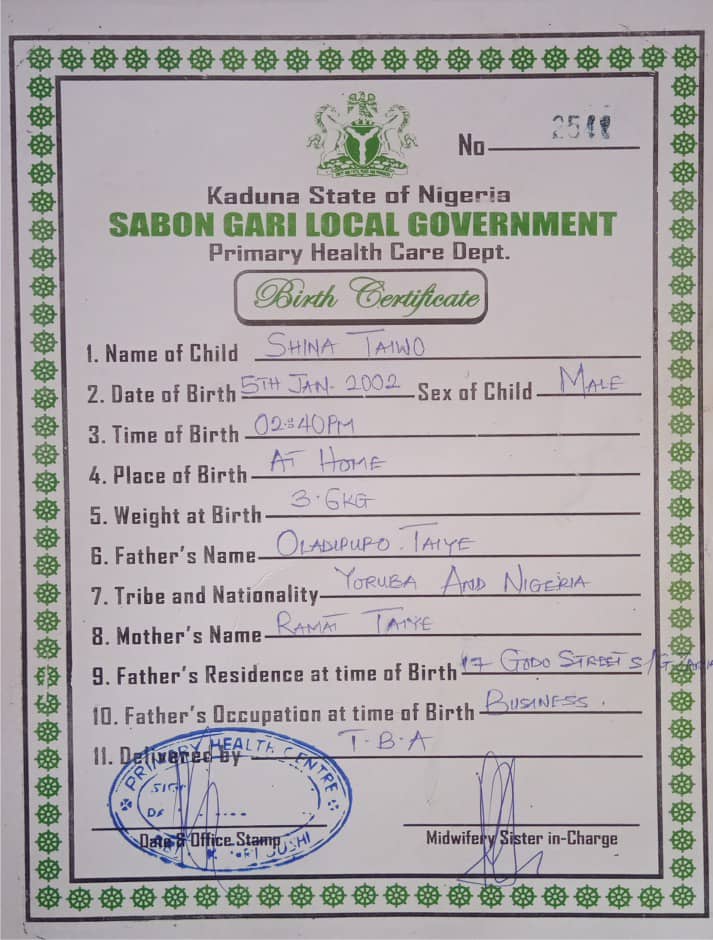 No 2511
Kaduna State of Nigeria
SABON GARI LOCAL GOVERNMENT
Primary Health Care Dept.
Birth Certificate
1. Name of Child SHINA TAIWO
2. Date of Birth 5TH JAN. 2002 Sex of Child MALE
3. Time of Birth 02:40PM
4. Place of Birth AT HOME
5. Weight at Birth 3.6KG
6. Father's Name OLADIPUPO. TAIYE
7. Tribe and Nationality YORUBA AND NIGERIA
8. Mother's Name RAMAT TAIYE
9. Father's Residence at time of Birth 17 GODO STREET S/G ZARIA
10. Father's Occupation at time of Birth BUSINESS.
11. Delivered by T.B.A
PRIMARY HEALTH CENTRE
SIGN
Date & Office Stamp
Midwifery Sister in-Charge